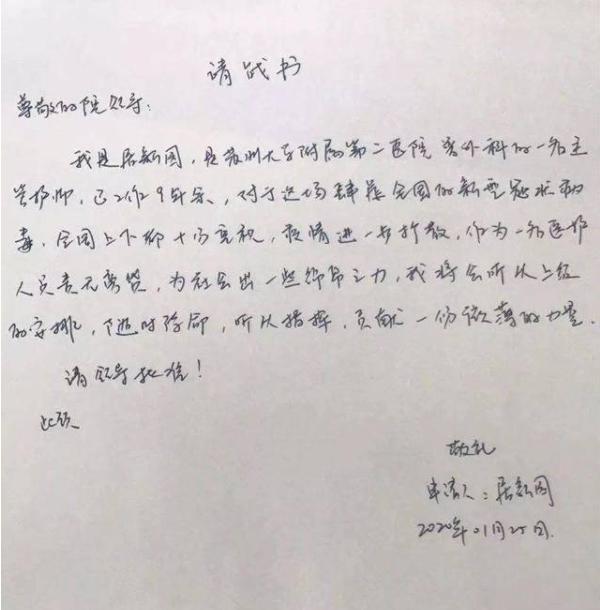 请战书
尊敬的院领导:
我是居新园,是苏州大学附属第二医院骨外科的一名主
管护师,已工作9年余,对于这场肆虐全国的新型冠状病
毒,全国上下都十分重视,疫情进一步扩散,作为一名医护
人员责无旁贷,为社会出一些绵帛之力,我将会听从上级
的安排,随时待命,听从指挥,贡献一份微薄的力量.
请领导批准!
此致
敬礼
申请人:居新园
2020年01月25日.